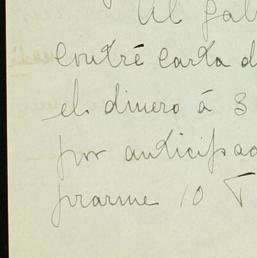 Al gal
contré carta d
el dinero á 3
por anticipad
prarme 10 T